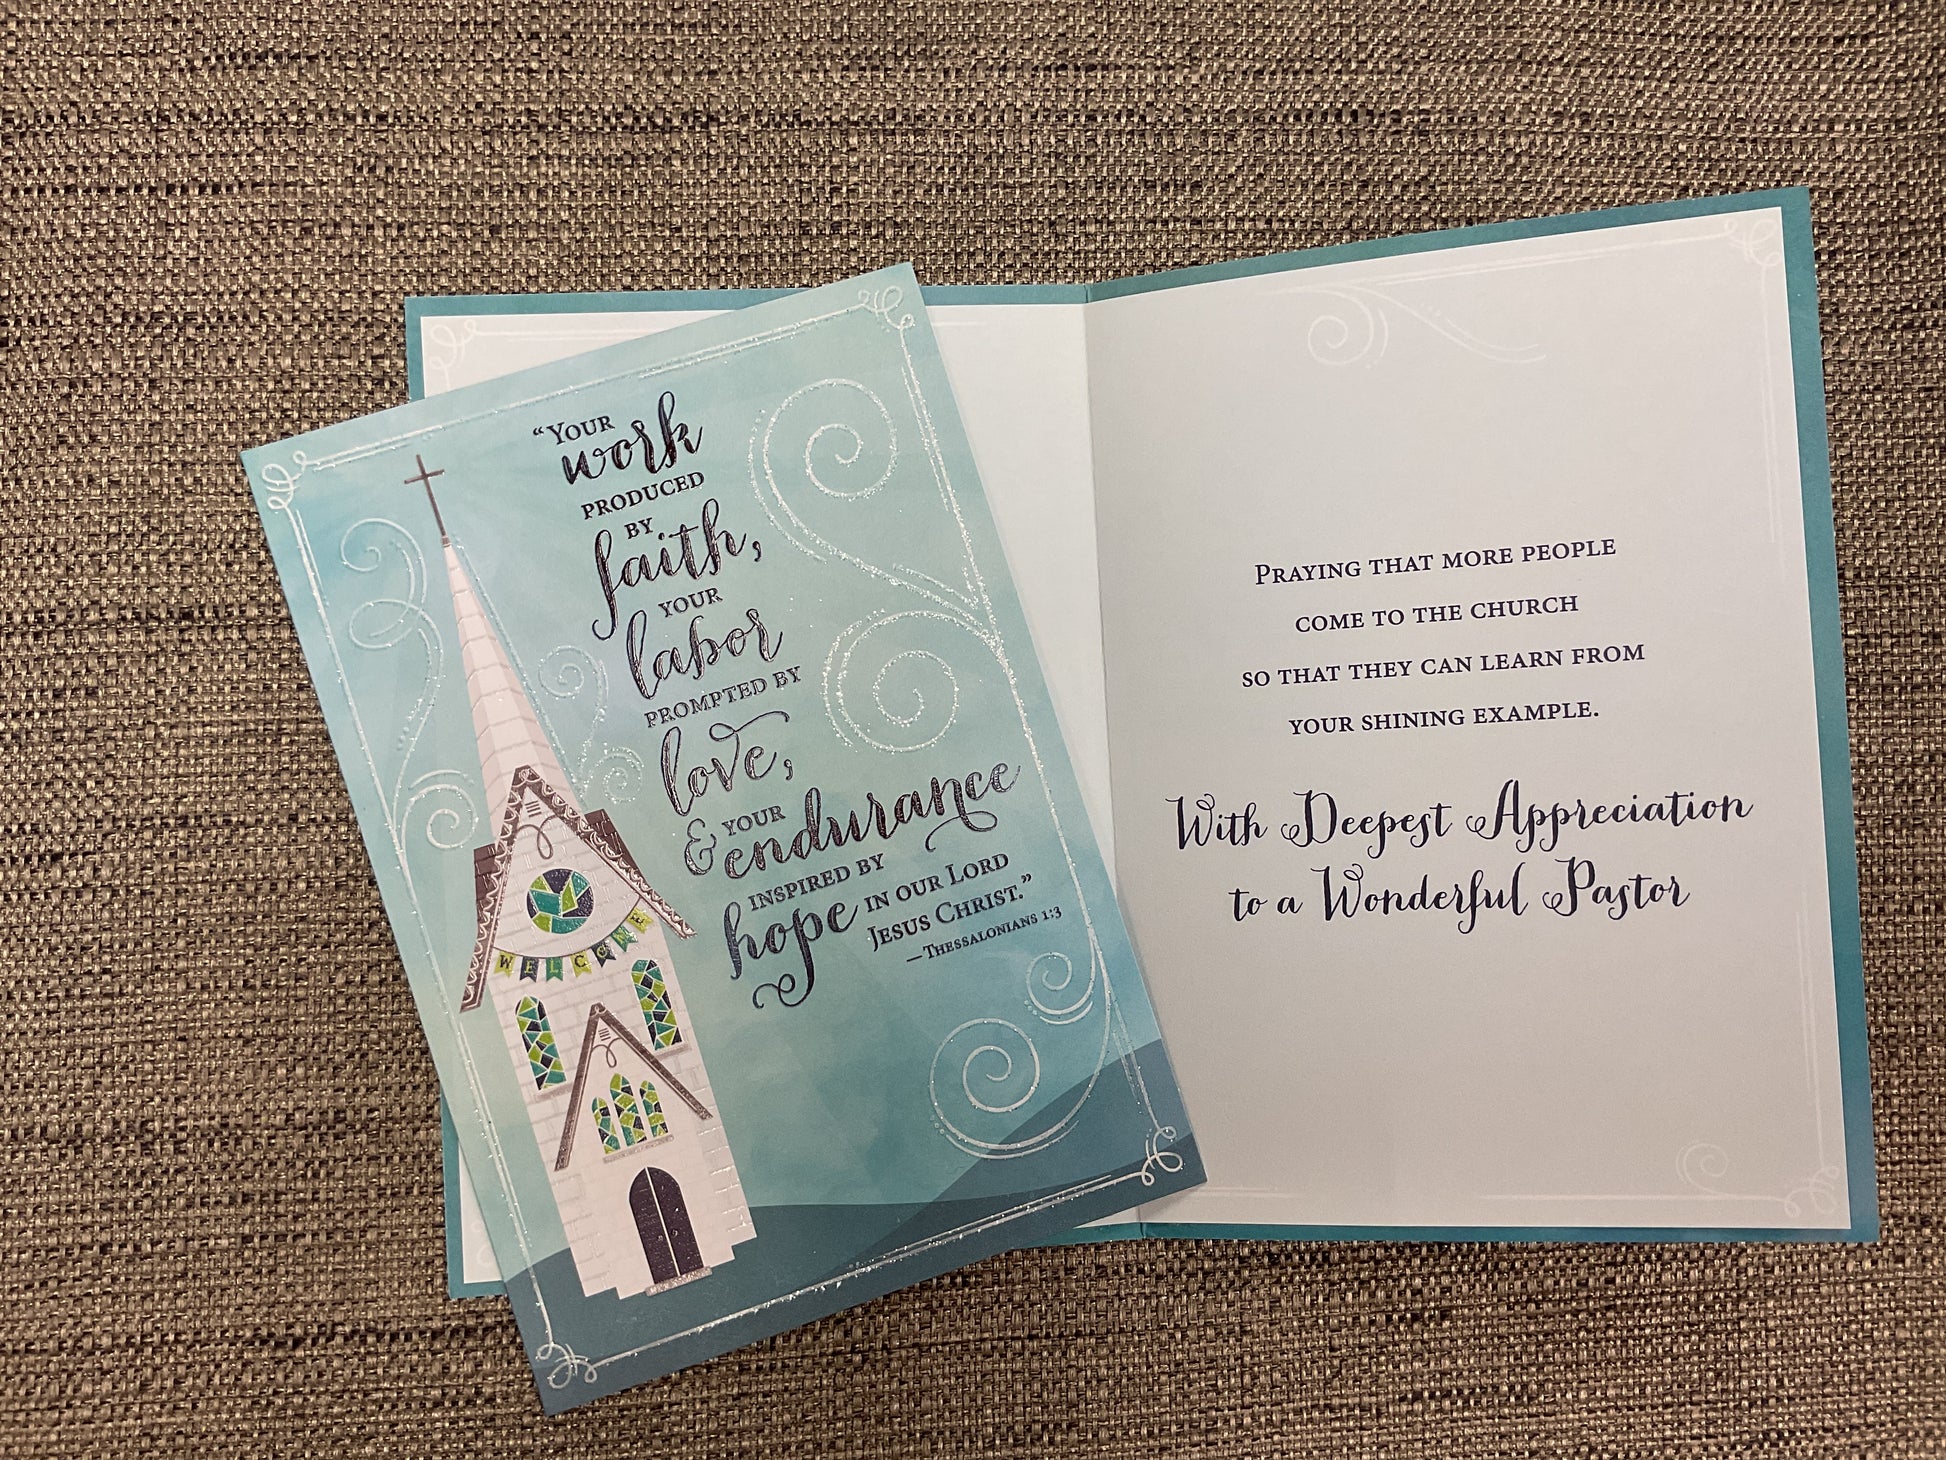 “Your
work
produced
by
faith,
your
labor
prompted by
love,
& your
endurance
inspired by
hope in our Lord
Jesus Christ.”
—Thessalonians 1:3
WELCOME
Praying that more people
come to the church
so that they can learn from
your shining example.
With Deepest Appreciation
to a Wonderful Pastor